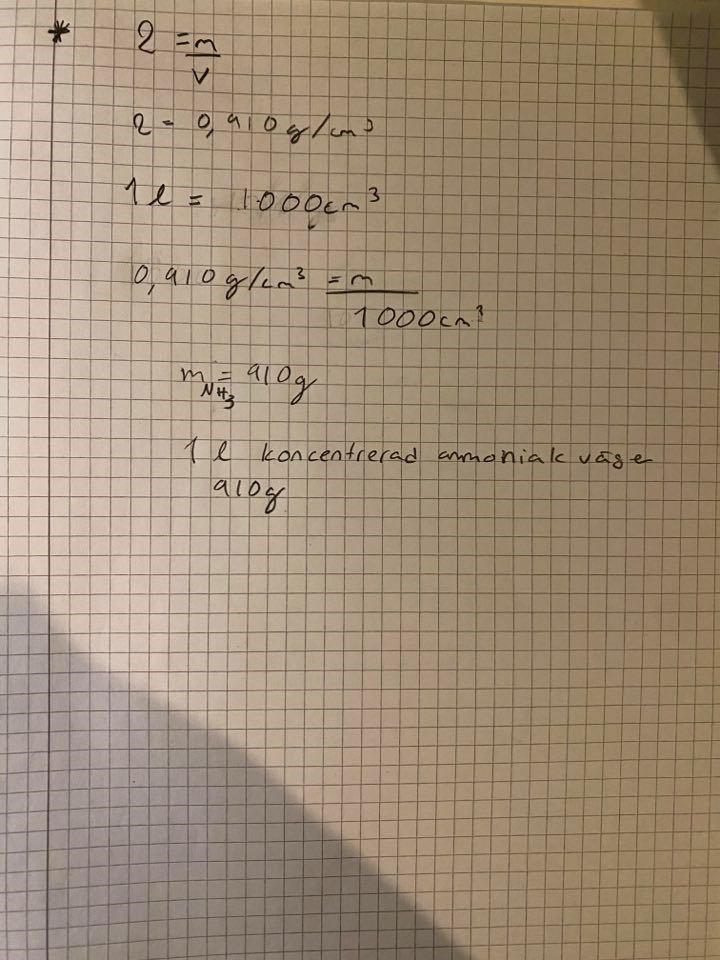 * 2 = m/v
2 = 0,910 g/cm³
1 l = 1000 cm³
0,910 g/cm³ = m/1000 cm³
m NH₃ = 910 g
1 l koncentrerad ammoniak väger
910g